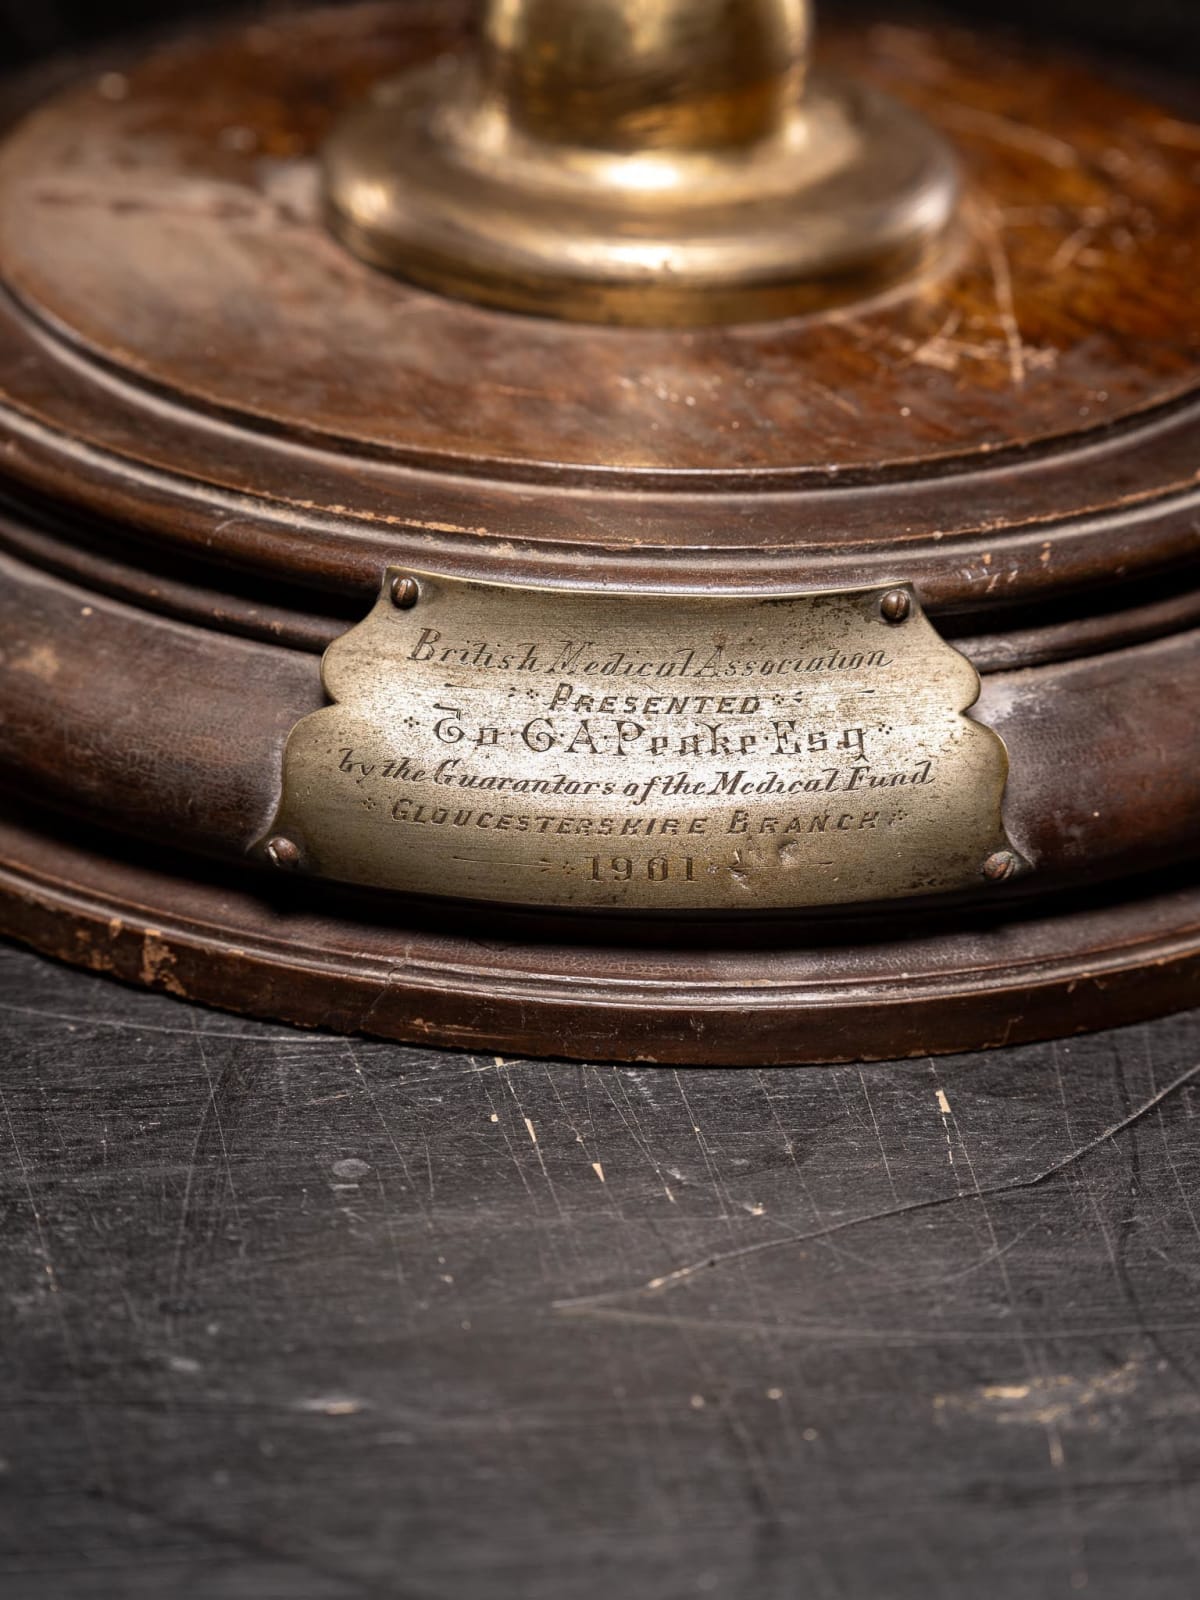 British Medical Association
PRESENTED
To G.A. Peake Esq
by the Guarantors of the Medical Fund
GLOUCESTERSHIRE BRANCH
1901